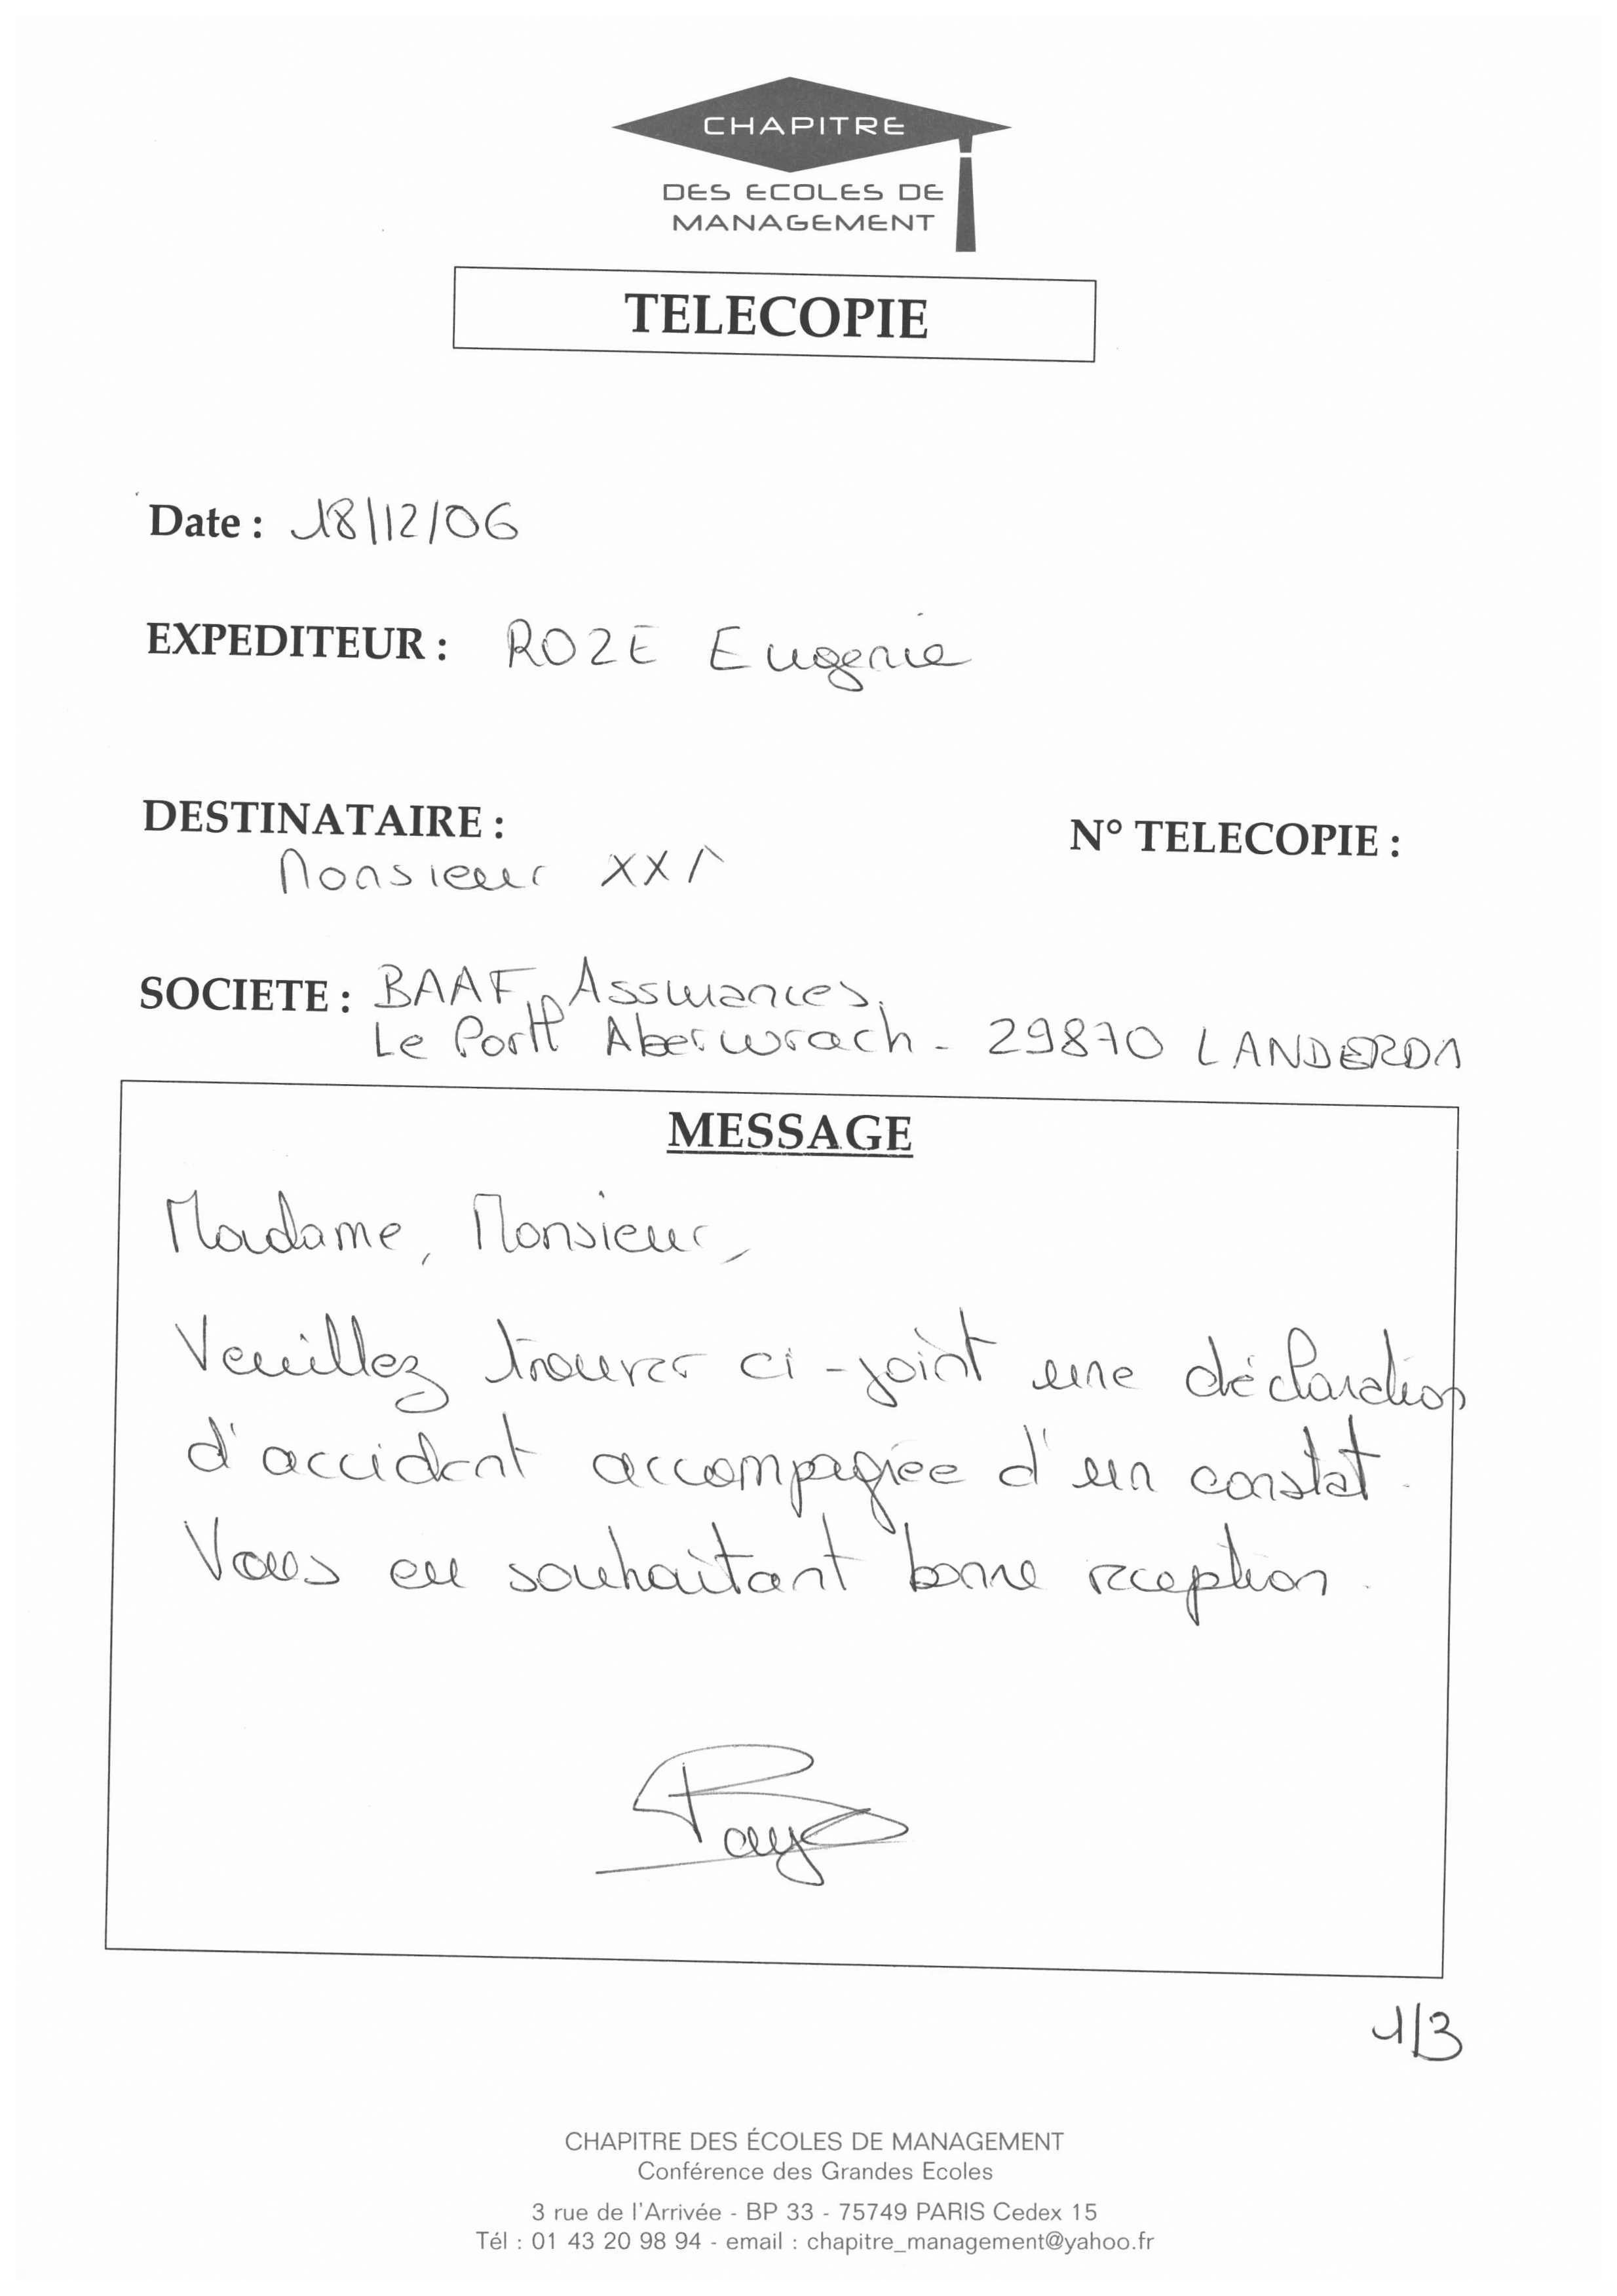 CHAPITRE
DES ECOLES DE
MANAGEMENT
TELECOPIE
Date : 18/12/06
EXPEDITEUR : ROZE Eugenie
DESTINATAIRE :
N° TELECOPIE :
Monsieur
SOCIETE : BAAF Assurances
Le Port Aberwrach - 29870 LANDERDA
MESSAGE
Madame, Monsieur,
Veuillez trouver ci-joint une déclaration
d'accident accompagnée d'un constat.
Vous en souhaitant bonne reception.
1/3
CHAPITRE DES ÉCOLES DE MANAGEMENT
Conférence des Grandes Ecoles
3 rue de l'Arrivée - BP 33 - 75749 PARIS Cedex 15
Tél : 01 43 20 98 94 - email : chapitre_management@yahoo.fr